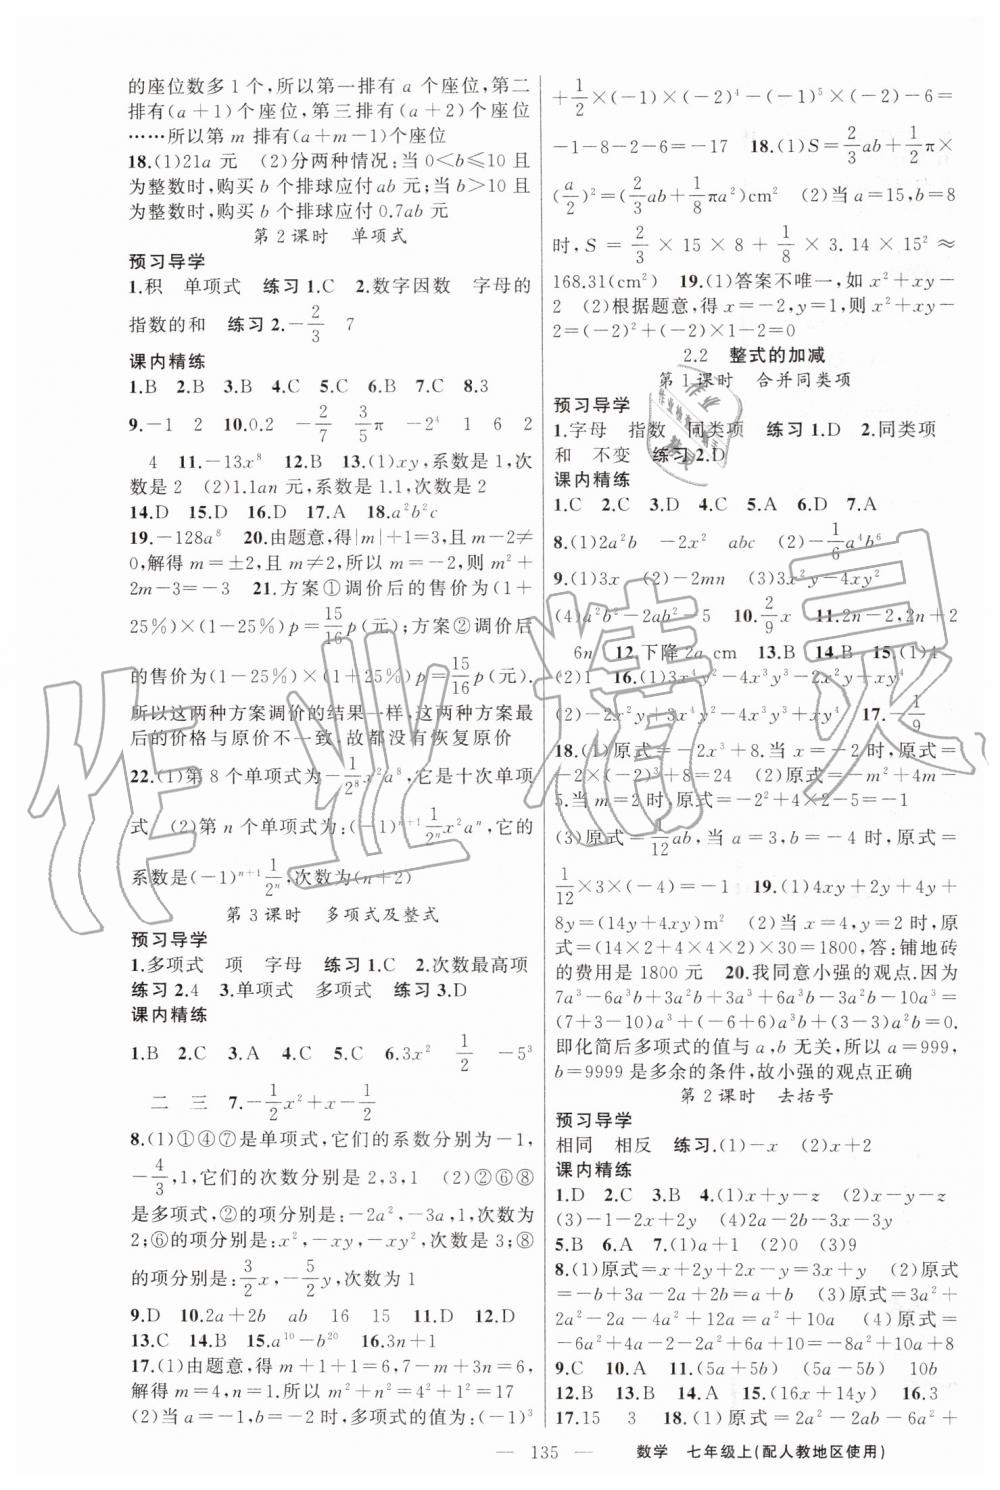 的座位数多1个,所以第一排有a个座位,第二
排有(a+1)个座位,第三排有(a+2)个座位
……所以第m排有(a+m-1)个座位
18.(1)21a元 (2)分两种情况:当0<b≤10且
为整数时,购买b个排球应付ab元;当b>10且
为整数时,购买b个排球应付0.7ab元
第2课时 单项式
预习导学
1.积 单项式 练习1.C 2.数字因数 字母的
指数的和 练习2.-2/3 7
课内精练
1.B 2.B 3.B 4.C 5.C 6.B 7.C 8.3
9.-1 2 10.0.2 -2/7 3/5π -2⁴ 1 6 2
4 11.-13x⁸ 12.B 13.(1)xy,系数是1,次
数是2 (2)1.1an元,系数是1.1,次数是2
14.D 15.D 16.D 17.A 18.a²b²c
19.-128a⁸ 20.由题意,得|m|+1=3,且m-2≠
0,解得m=±2,且m≠2,所以m=-2,则m²+
2m-3=-3 21.方案①调价后的售价为(1+
25%)×(1-25%)p=15/16p(元);方案②调价后
的售价为(1-25%)×(1+25%)p=15/16p(元).
所以这两种方案调价的结果一样,这两种方案最
后的价格与原价不一致,故都没有恢复原价
22.(1)第8个单项式为-1/2⁸x²a⁸,它是十次单项
式 (2)第n个单项式为:(-1)ⁿ⁺¹1/2ⁿx²aⁿ,它的
系数是(-1)ⁿ⁺¹1/2ⁿ,次数为(n+2)
第3课时 多项式及整式
预习导学
1.多项式 项 字母 练习1.C 2.次数最高项
练习2.4 3.单项式 多项式 练习3.D
课内精练
1.B 2.C 3.A 4.C 5.C 6.3x² 1/2 -5³
二 三 7.-1/2x²+x-1/2
8.(1)①④⑦是单项式,它们的系数分别为-1,
-4/3,1,它们的次数分别是2,3,1 (2)②⑥⑧
是多项式,②的项分别是:-2a²,-3a,1,次数为
2;⑥的项分别是:x²,-xy,-xy²,次数是3;⑧
的项分别是:3/2x,-5/2y,次数为1
9.D 10.2a+2b ab 16 15 11.D 12.D
13.C 14.B 15.a¹⁰-b²⁰ 16.3n+1
17.(1)由题意,得m+1+1=6,7-m+3n=6,
解得m=4,n=1.所以m²+n²=4²+1²=17
(2)当a=-1,b=-2时,多项式的值为:(-1)³
+1/2×(-1)×(-2)⁴-(-1)⁵×(-2)-6=
-1-8-2-6=-17 18.(1)S=2/3ab+1/2π×
(a/2)²=(2/3ab+1/8πa²)cm² (2)当a=15,b=8
时,S=2/3×15×8+1/8×3.14×15²≈
168.31(cm²) 19.(1)答案不唯一,如x²+xy-
2 (2)根据题意,得x=-2,y=1,则x²+xy-
2=(-2)²+(-2)×1-2=0
2.2 整式的加减
第1课时 合并同类项
预习导学
1.字母 指数 同类项 练习1.D 2.同类项
和 不变 练习2.D
课内精练
1.C 2.C 3.C 4.C 5.A 6.D 7.A
8.(1)2a²b -2x² abc (2)-1/6a⁴b⁶
9.(1)3x (2)-2mn (3)3x²y-4xy²
(4)a²b²-2ab-5 10.2/9x 11.2n-2,2n+2
6n 12.下降2a cm 13.B 14.B 15.(1)4
(2)1 16.(1)3x⁴y²-4x³y³-2x²y+xy⁴
18.(1)原式=-2x³+8.当x=-2时,原式=
-2×(-2)³+8=24 (2)原式=-m²+4m-
5.当m=2时,原式=-2²+4×2-5=-1
(3)原式=1/12ab,当a=3,b=-4时,原式=
1/12×3×(-4)=-1 19.(1)4xy+2y+4y+
8y=(14y+4xy)m² (2)当x=4,y=2时,原
式=(14×2+4×4×2)×30=1800,答:铺地砖
的费用是1800元 20.我同意小强的观点.因为
7a³-6a³b+3a²b+3a³+6a³b-3a²b-10a³=
(7+3-10)a³+(-6+6)a³b+(3-3)a²b=0.
即化简后多项式的值与a,b无关,所以a=999,
b=9999是多余的条件,故小强的观点正确
第2课时 去括号
预习导学
相同 相反 练习.(1)-x (2)x+2
课内精练
1.D 2.C 3.B 4.(1)x+y-z (2)x-y-z
(3)-1-x-y-z (4)2a-2b-3x-3y
5.B 6.A 7.(1)a+1 (2)0 (3)9
8.(1)原式=x+2x-2y=3x+y (2)原式
=-b+3a-2a+2b=a+b (3)原式=3a²+
2a²-2a-4a²+12a=a²+10a (4)原式=
-6a²+4a-2-2a²+6a+10=-8a²+10a+8
9.C 10.A 11.(5a+5b) (5a-5b) 10b
12.B 13.B 14.A 15.(16x+14y) 16.3
17.15 3 18.(1)原式=2a²-2ab-6a²+
— 135 — 数学 七年级上(配人教地区使用)
作业精灵